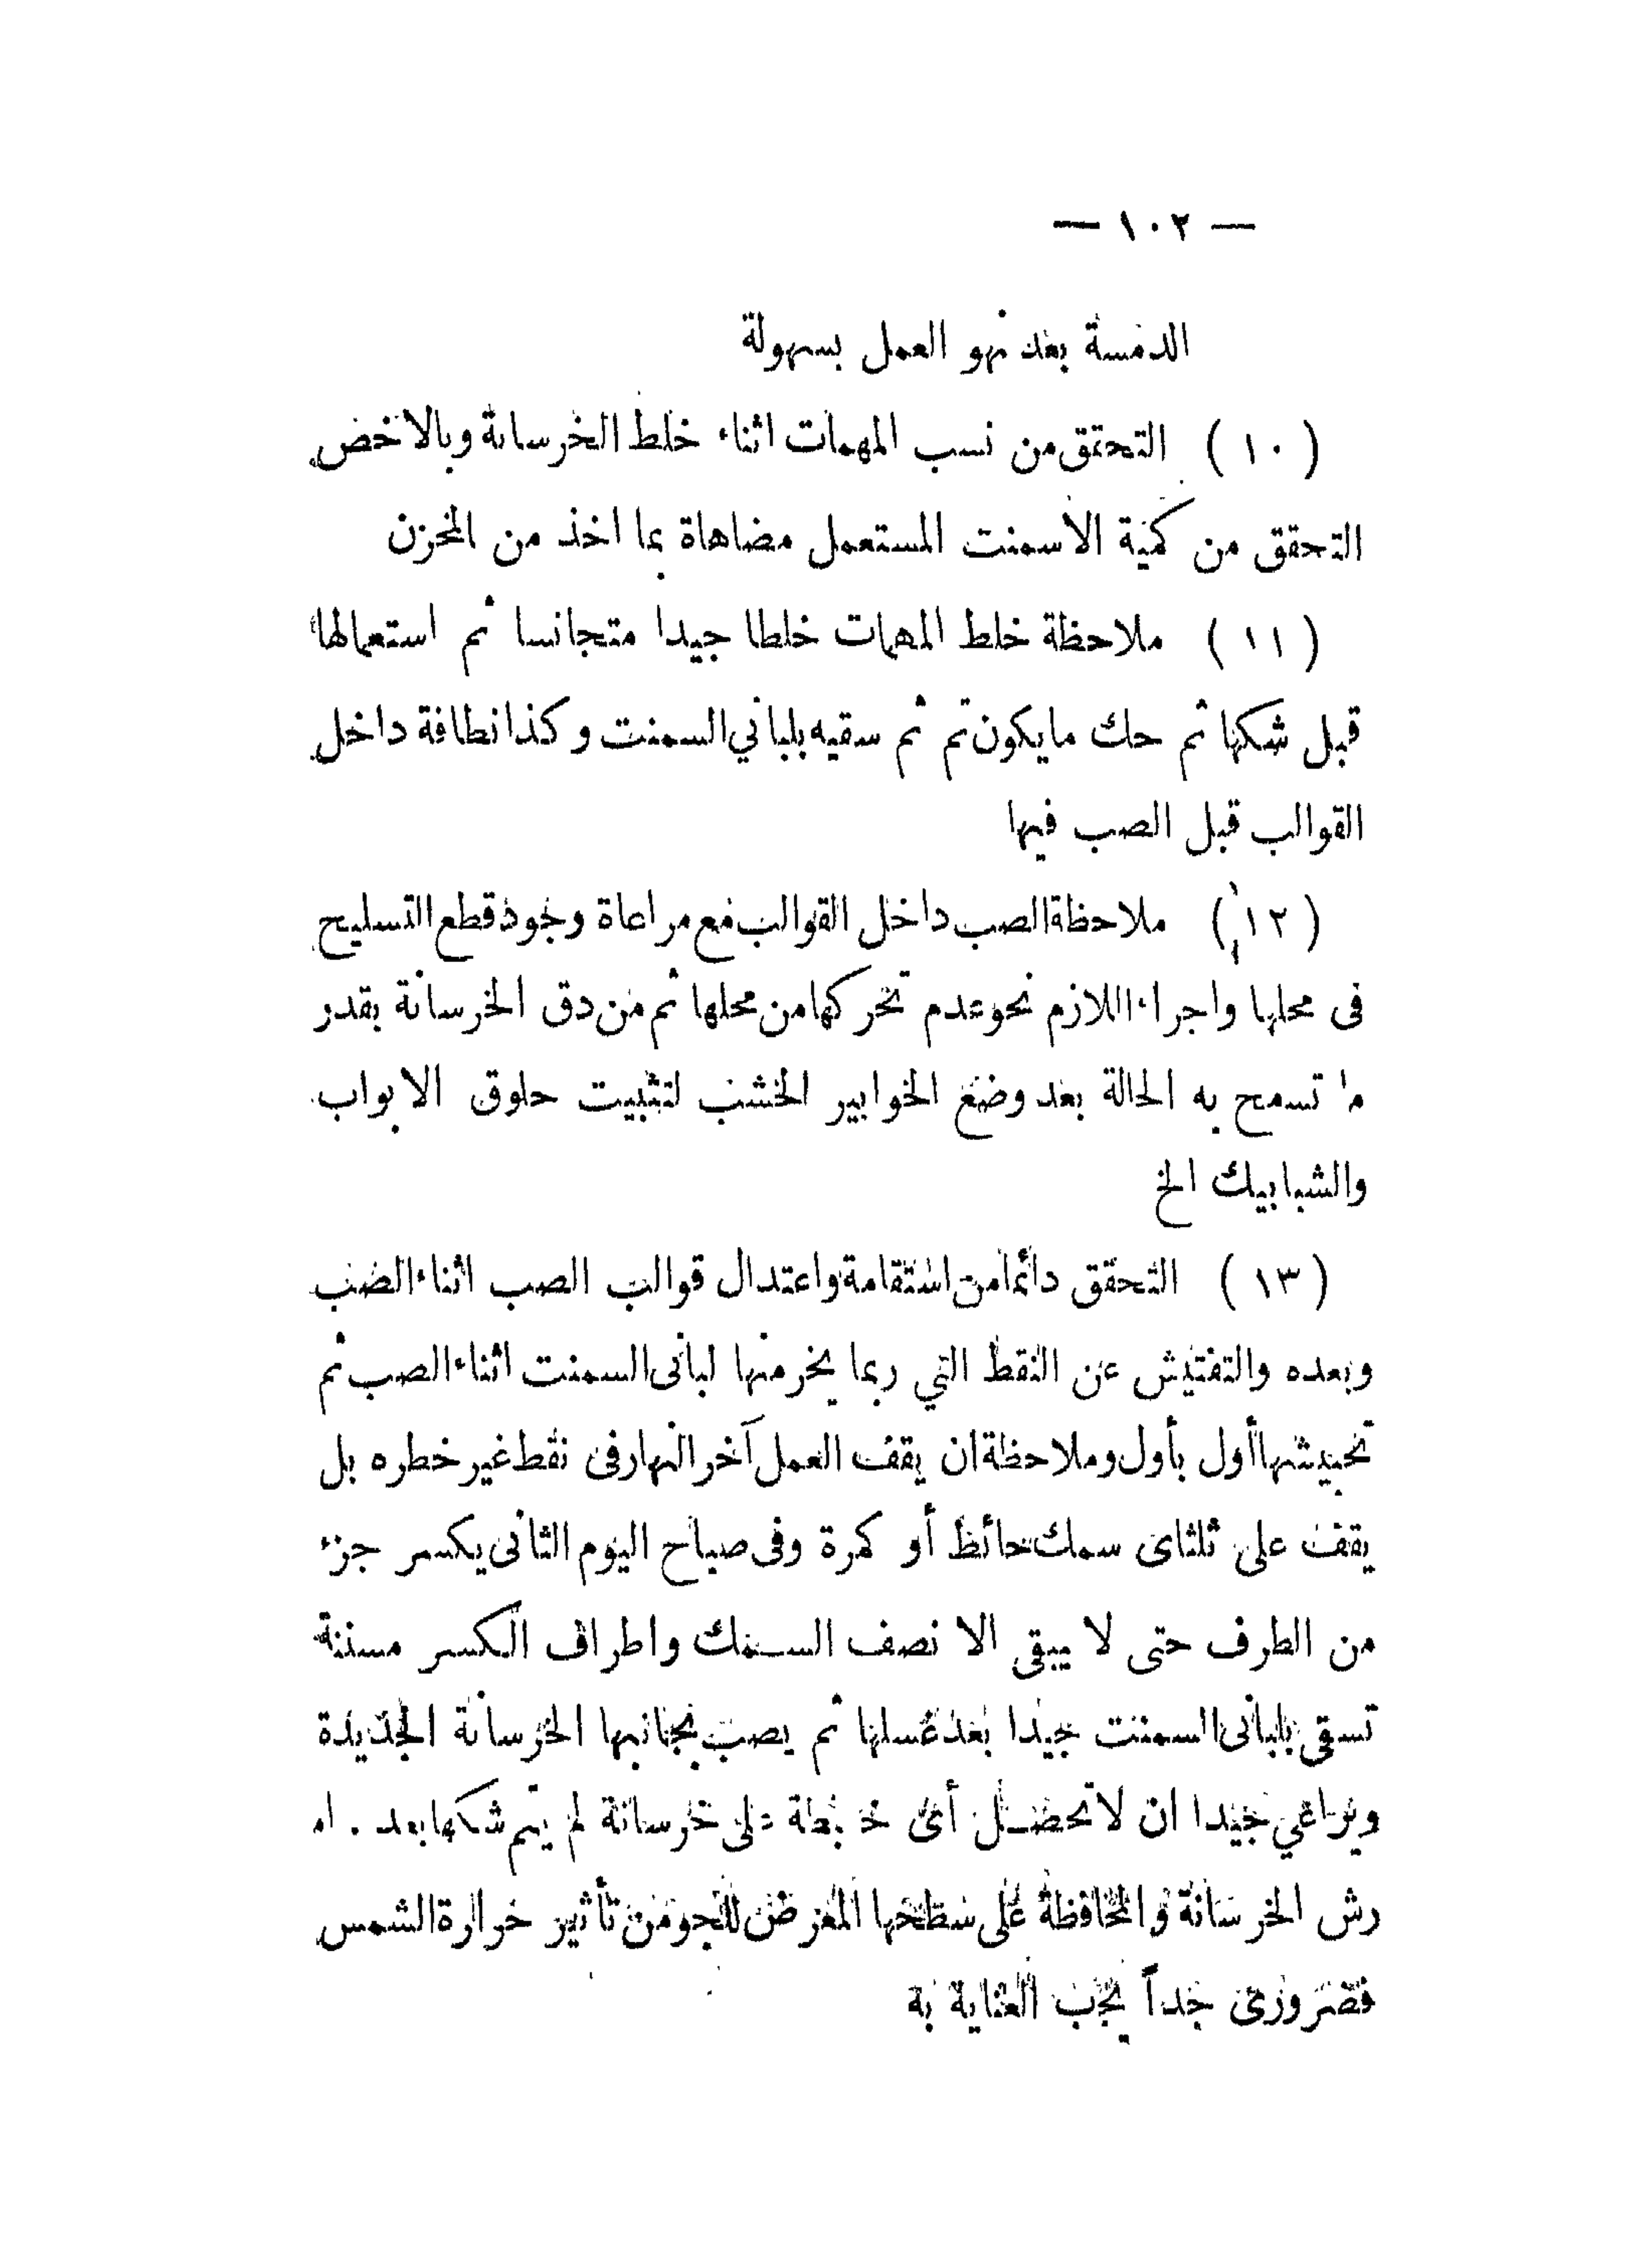 — ١٠٢ —
الدمسة بعد نهو العمل بسهولة
( ١٠ ) التحقق من نسب المهمات اثناء خلط الخرسانة وبالاخص
التحقق من كمية الاسمنت المستعمل مضاهاة بما اخذ من المخزن
( ١١ ) ملاحظة خلط المهمات خلطا جيدا متجانسا ثم استعمالها
قبل شكها ثم حك ما يكون تم ثم سقيه بلباني السمنت وكذا نظافة داخل
القوالب قبل الصب فيها
( ١٢ ) ملاحظة الصب داخل القوالب مع مراعاة وجود قطع التسليح
فى محلها واجراء اللازم نحو عدم تحركها من محلها ثم من دق الخرسانة بقدر
ما تسمح به الحالة بعد وضع الخوابير الخشب لتثبيت حلوق الابواب
والشبابيك الخ
( ١٣ ) التحقق دائما من استقامة واعتدال قوالب الصب اثناء الصب
وبعده والتفتيش عن النقط التي ربما يخر منها لبانى السمنت اثناء الصب ثم
تحبيشها أول بأول وملاحظة ان يقف العمل آخر النهار فى نقط غير خطره بل
يقف على ثلثاى سمك حائط أو كمرة وفى صباح اليوم الثانى يكسر جزء
من الطرف حتى لا يبقى الا نصف السمك واطراف الكسر مسننة
تسقى بلبانى السمنت جيدا بعد غسلها ثم يصب بجانبها الخرسانة الجديدة
ويراعي جيدا ان لا تحصل أى خبطة على خرسانة لم يتم شكها بعد . اما
رش الخرسانة والمحافظة على سطحها المعرض للجو من تأثير حرارة الشمس
فضرورى جداً يجب العناية به